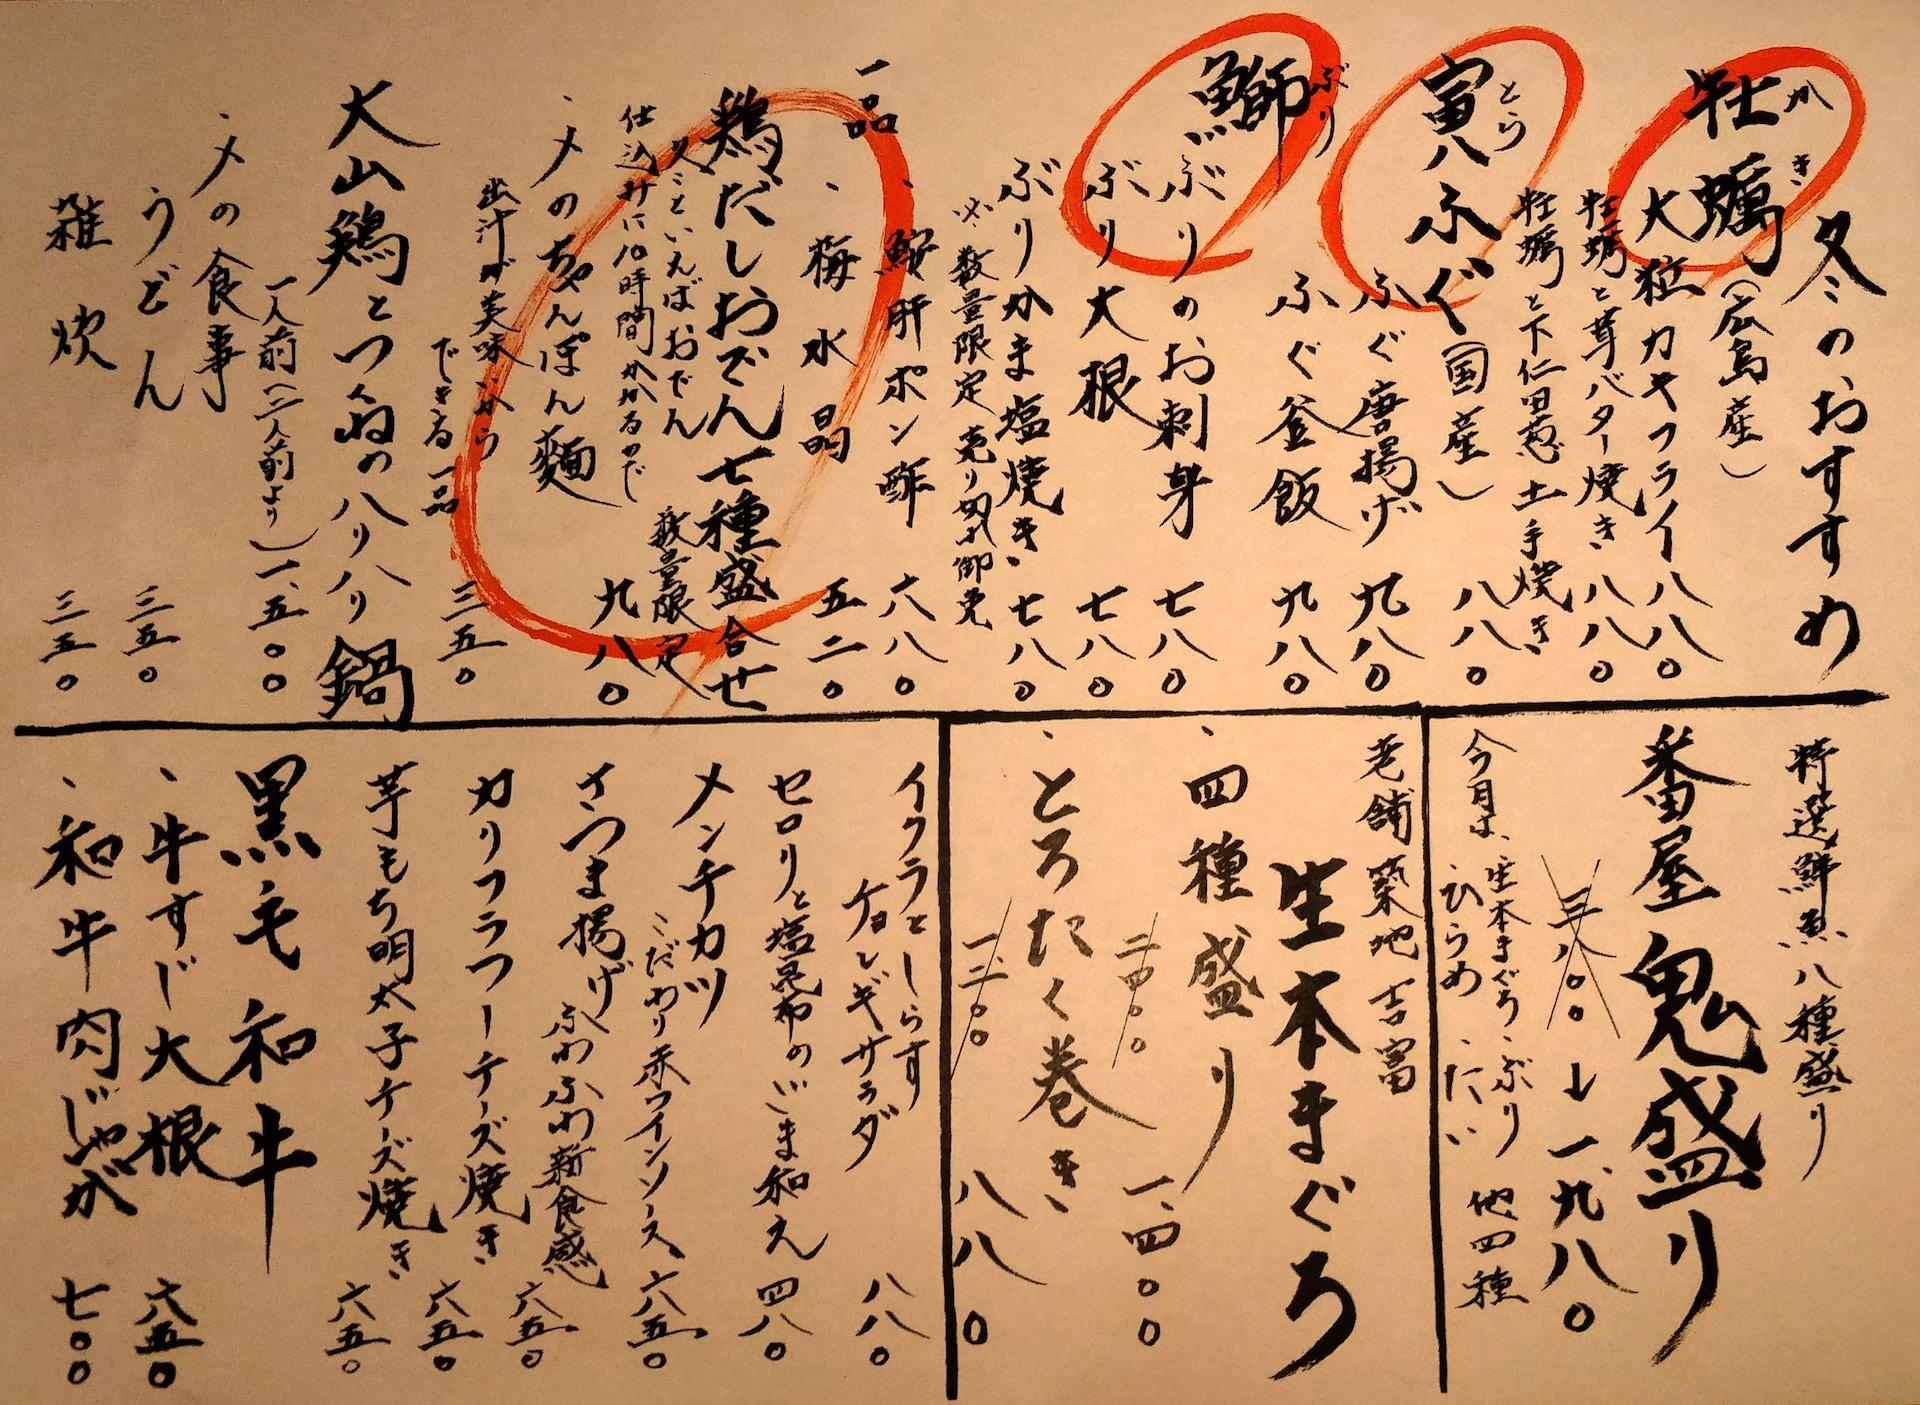 冬のおすすめ
牡蠣(広島産)
かき
大粒カキフライ 八八〇
牡蠣と茸バター焼き 八八〇
牡蠣と下仁田葱土手焼き 八八〇
寅八ふぐ(国産)
とら
ふぐ唐揚げ 九八〇
ふぐ釜飯 九八〇
鰤
ぶり
ぶりのお刺身 七八〇
ぶり大根 七八〇
ぶりかま塩焼き 七八〇
※数量限定 売り切れ御免
一品
、鮟肝ポン酢 六八〇
、梅水晶 五二〇
鶏だしおでん七種盛合せ
冬といえばおでん
仕込みに10時間かかるので
数量限定
九八〇
、〆のちゃんぽん麺 三五〇
出汁が美味いから
できる一品
大山鶏とつくねのハリハリ鍋
一人前(二人前より) 一、五〇〇
、〆の食事
うどん 三五〇
雑炊 三五〇
特選鮮魚八種盛り
番屋鬼盛り
三八〇〇 一、九八〇
今月は、生本まぐろ・ぶり
・ひらめ・たい 他四種
老舗築地吉富
生本まぐろ
、四種盛り
二四〇〇 一、四〇〇
、とろたく巻き
一、二〇〇 八八〇
イクラとしらす
チョレギサラダ 八八〇
セロリと塩昆布のごま和え 四八〇
メンチカツ
こだわり赤ワインソース 六五〇
さつま揚げ
ふわふわ新食感 六五〇
カリフラワーチーズ焼き 六五〇
芋もち明太子チーズ焼き 六五〇
黒毛和牛
、牛すじ大根 六五〇
、和牛肉じゃが 七〇〇